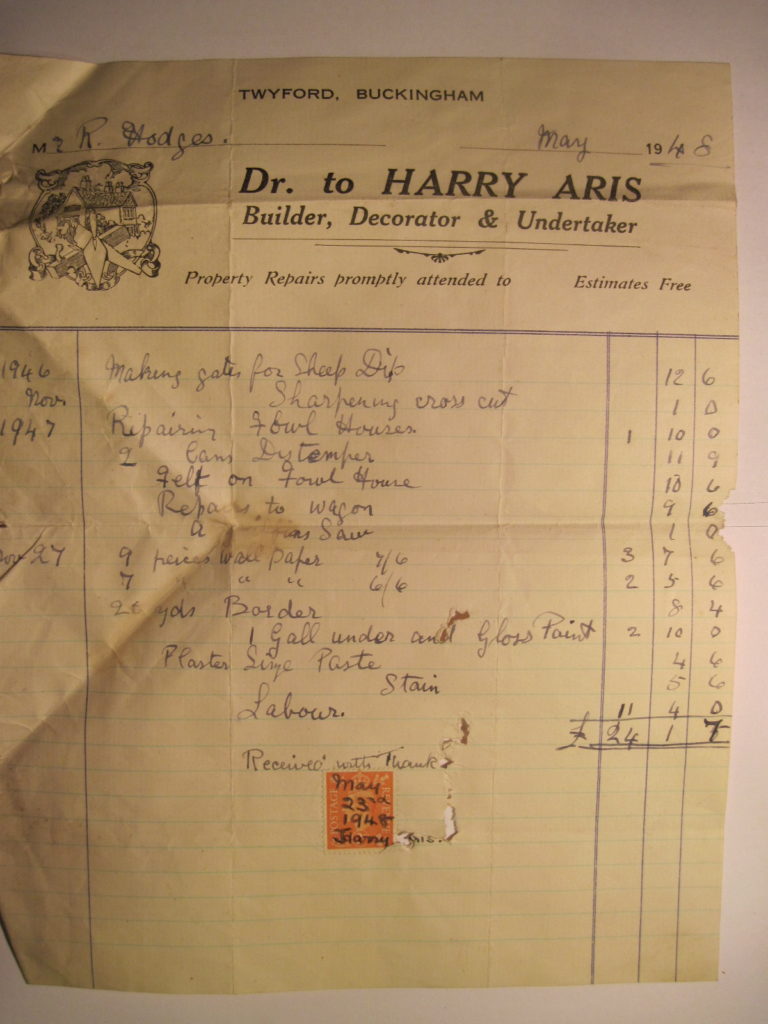 TWYFORD, BUCKINGHAM
Mr R. Hodges. May 1948
Dr. to HARRY ARIS
Builder, Decorator & Undertaker
Property Repairs promptly attended to Estimates Free
1946 Making gates for Sheep Dip 12 6
Nov. Sharpening cross cut 1 0
1947 Repairing Fowl Houses 1 10 0
2 Cans Distemper 11 9
Felt on Fowl House 10 6
Repairs to wagon 9 6
Saw 1 0
Nov 27 9 peices Wall Paper 7/6 3 7 6
7 " " 6/6 2 5 6
yds Border 8 4
1 Gall under and Gloss Paint 2 10 0
Plaster Size Paste 4 6
Stain 5 6
Labour. 11 4 0
£ 24 1 7
Received with Thanks
POSTAGE REVENUE
May
23rd
1948
Harry Aris.